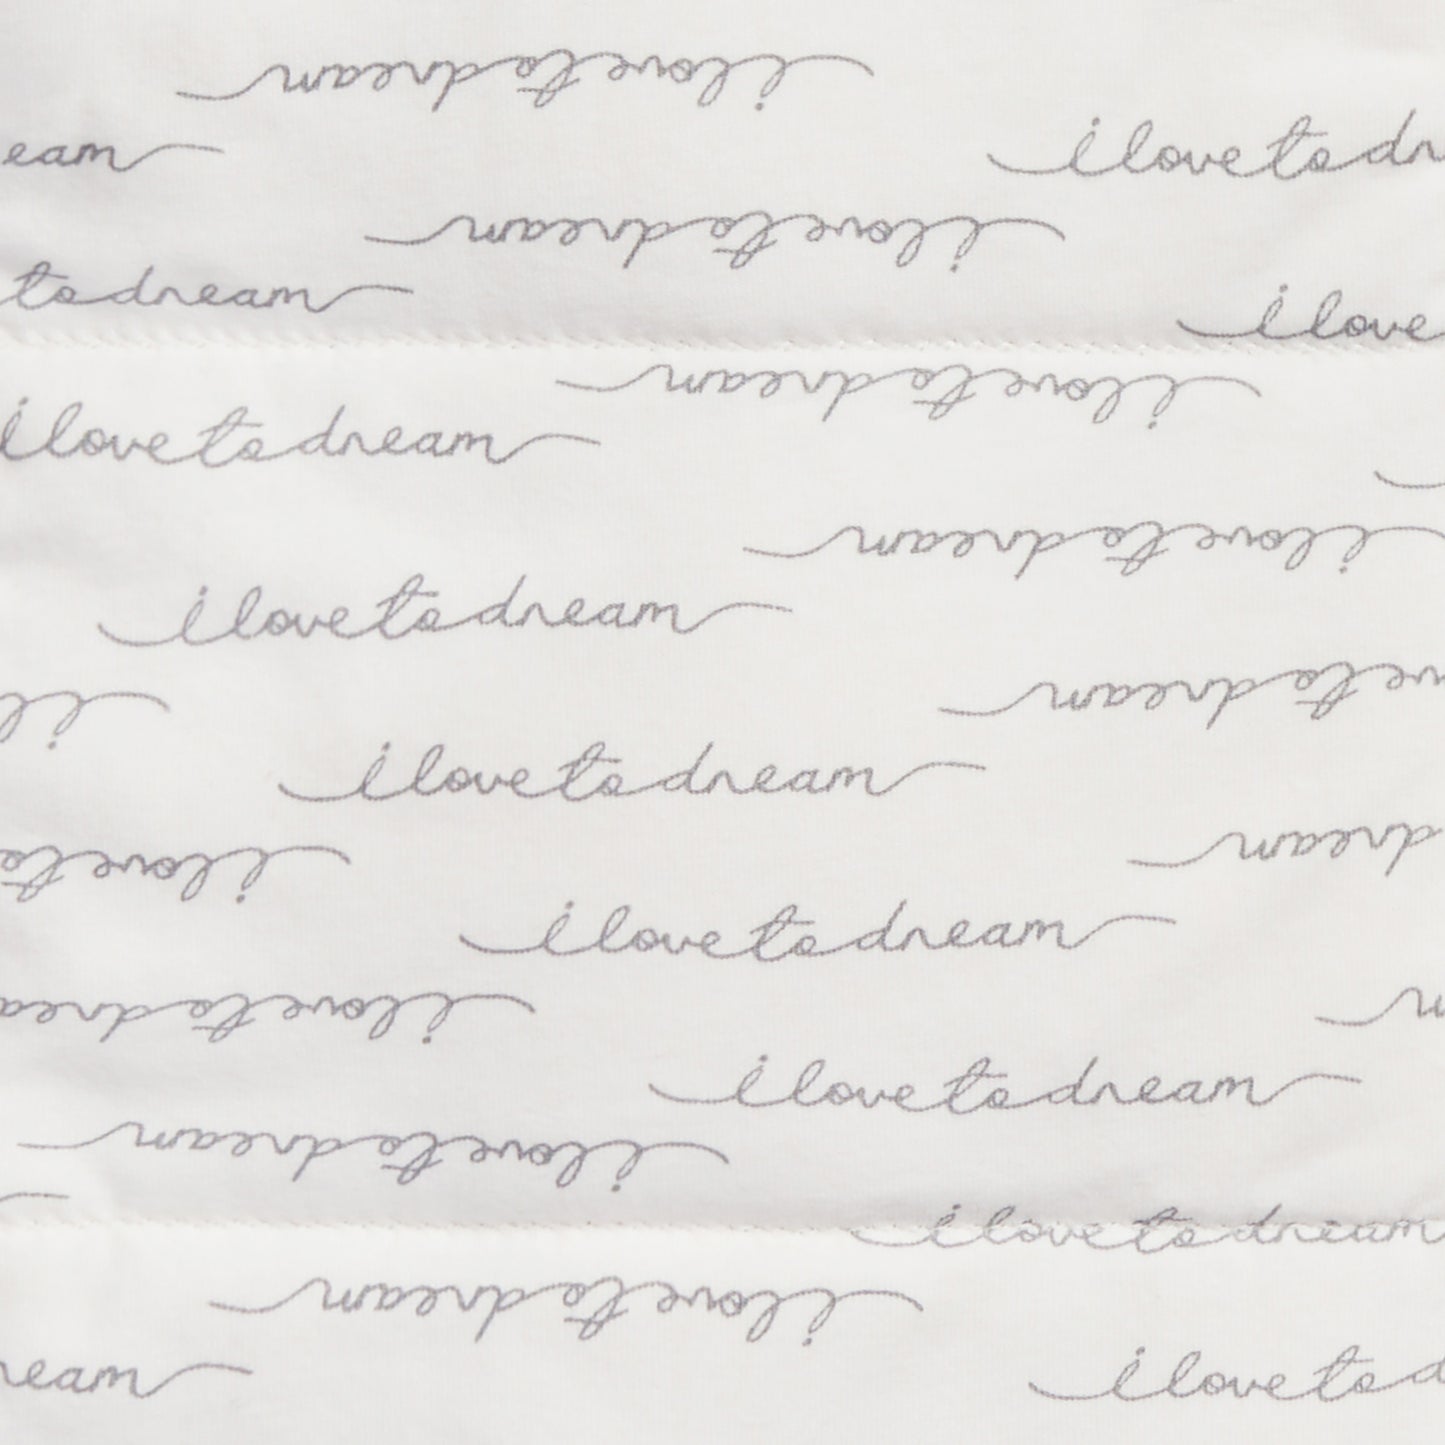 i love to dream
eam
i love to dr
i love to dream
to dream
i love
i love to dream
i love to dream
i love to dream
i love to dream
il
ve to dream
i love to dream
love to
dream
i love to dream
i love to drea
i love to dream
i love to dream
i love to dream
i love to dream
ream
i love to d